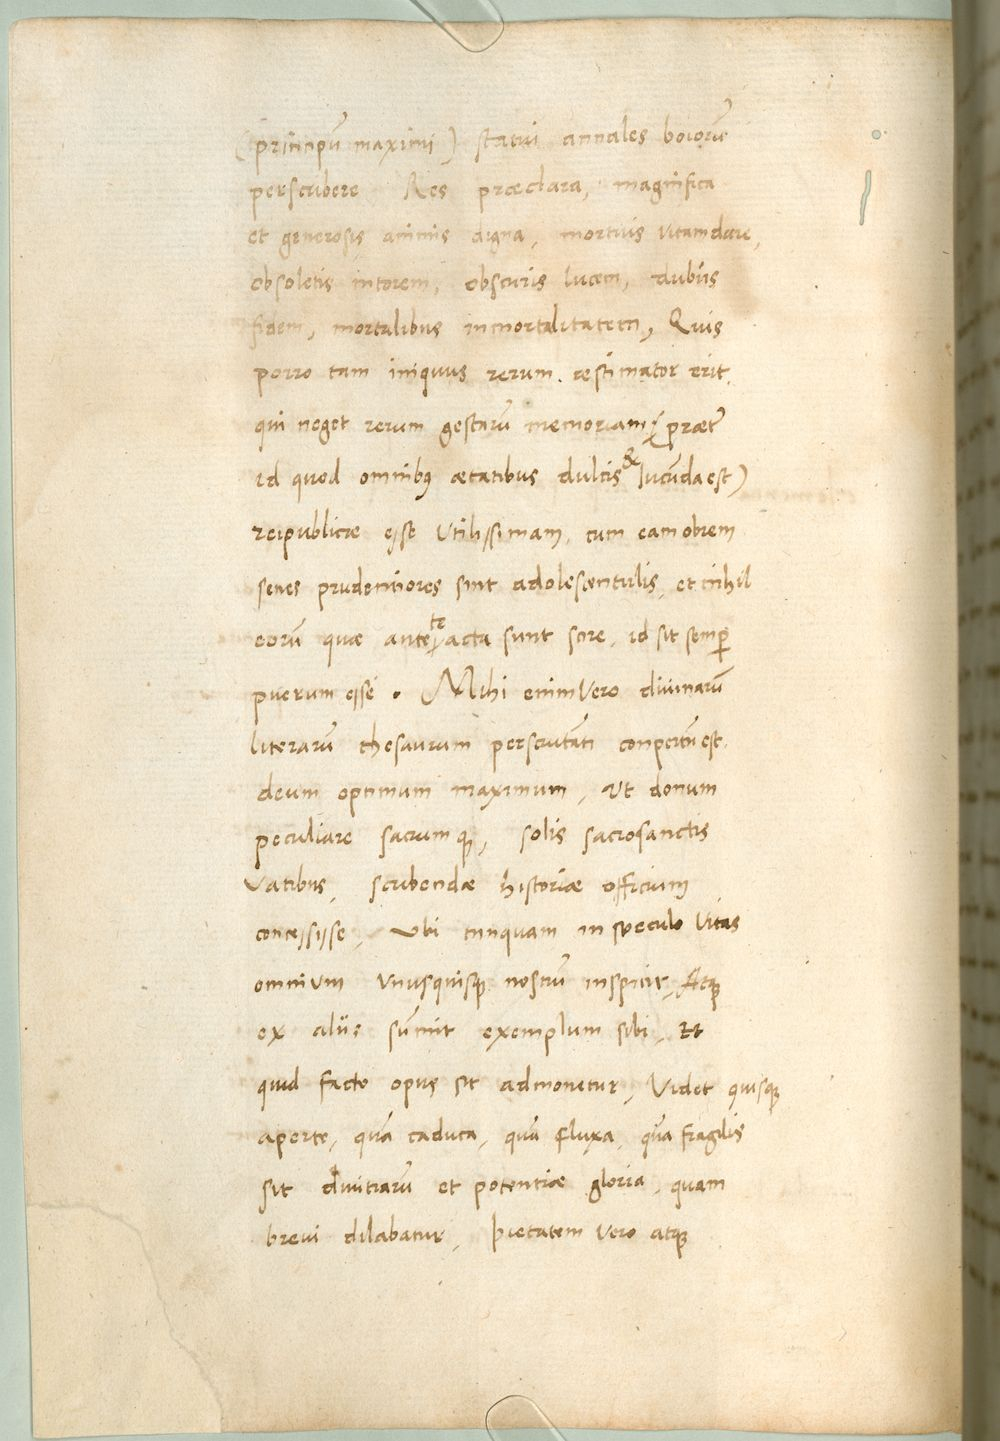 (principū maximi) statui annales boiorū
perscribere Res præclara, magnifica
et generosis animis digna, mortuis vitam dare,
obsoletis nitorem, obscuris lucem, dubiis
fidem, mortalibus inmortalitatem, Quis
porro tam iniquus rerum æstimator erit,
qui neget rerum gestarū memoriam (præter
id quod omnibꝰ ætatibus dulcis & iucūda est)
reipublicæ esse utilissimam, cum eam obrem
senes prudentiores sint adolescentulis, et nihil
eorū quæ ante te acta sunt scire, id sit semp
puerum esse. Mihi enimvero divinarū
literarū thesaurum perscrutāti conpertū est,
deum optimum maximum, ut donum
peculiare sacrumqꝫ, solis sacrosanctis
vatibus, scribendæ historiæ officium
concessisse, Ubi tanquam in speculo vitas
omnium unusquisqꝫ nostrū inspicit, Atqꝫ
ex aliis sūmit exemplum sibi, Et
quid facto opus sit admonetur, Videt quisqꝫ
aperte, quā caduca, quā fluxa, quā fragilis
sit divitiarū et potentiæ gloria, quam
brevi dilabatur, pietatem vero atqꝫ